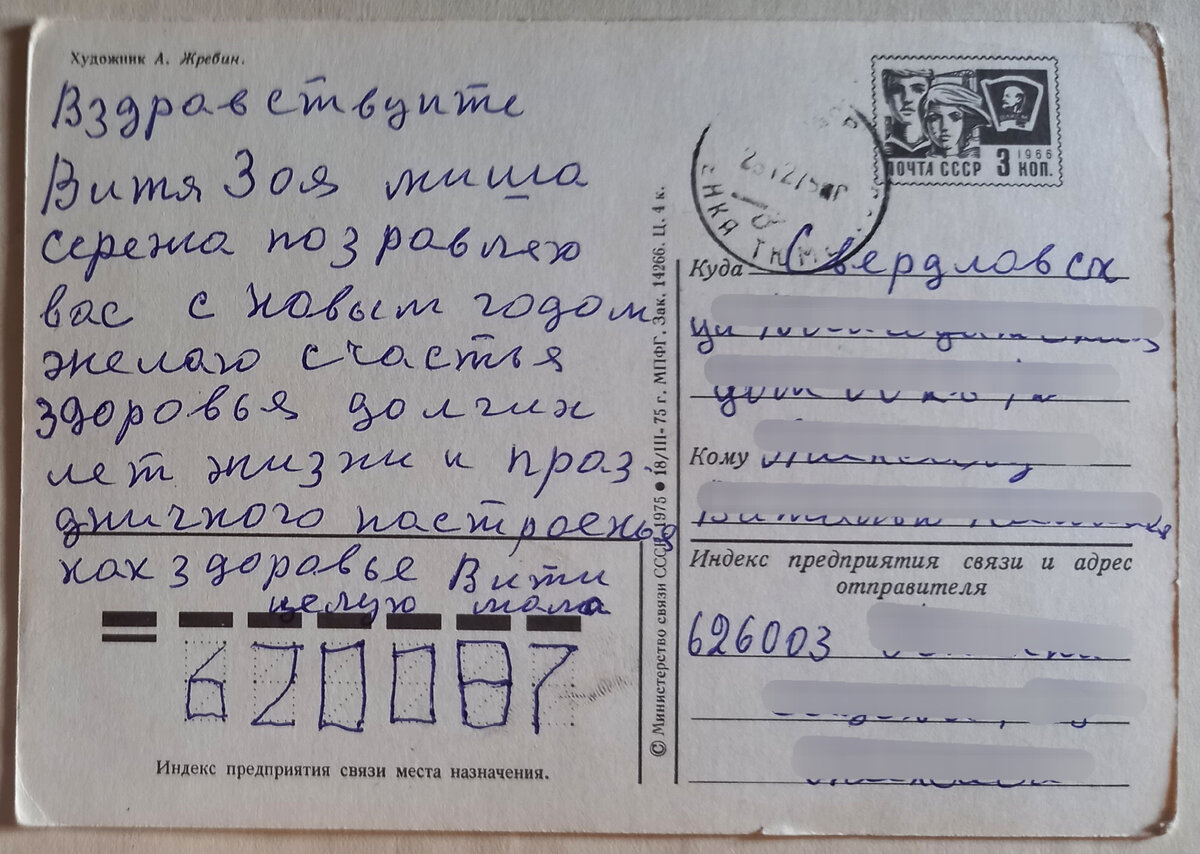 Художник А. Жребин.
Вздравствуите
Витя Зоя миша
сережа поздравляю
вас с новым годом
желаю счастья
здоровья долгих
лет жизни и праз.
дничного настроенья
как здоровье Вити
целую мама
620087
Индекс предприятия связи места назначения.
© Министерство связи СССР, 1975 ● 18/III-75 г. МПФГ. Зак. 14266. Ц. 4 к.
ПОЧТА СССР 3 КОП.
1966
Куда Свердловск
Кому
Индекс предприятия связи и адрес
отправителя
626003